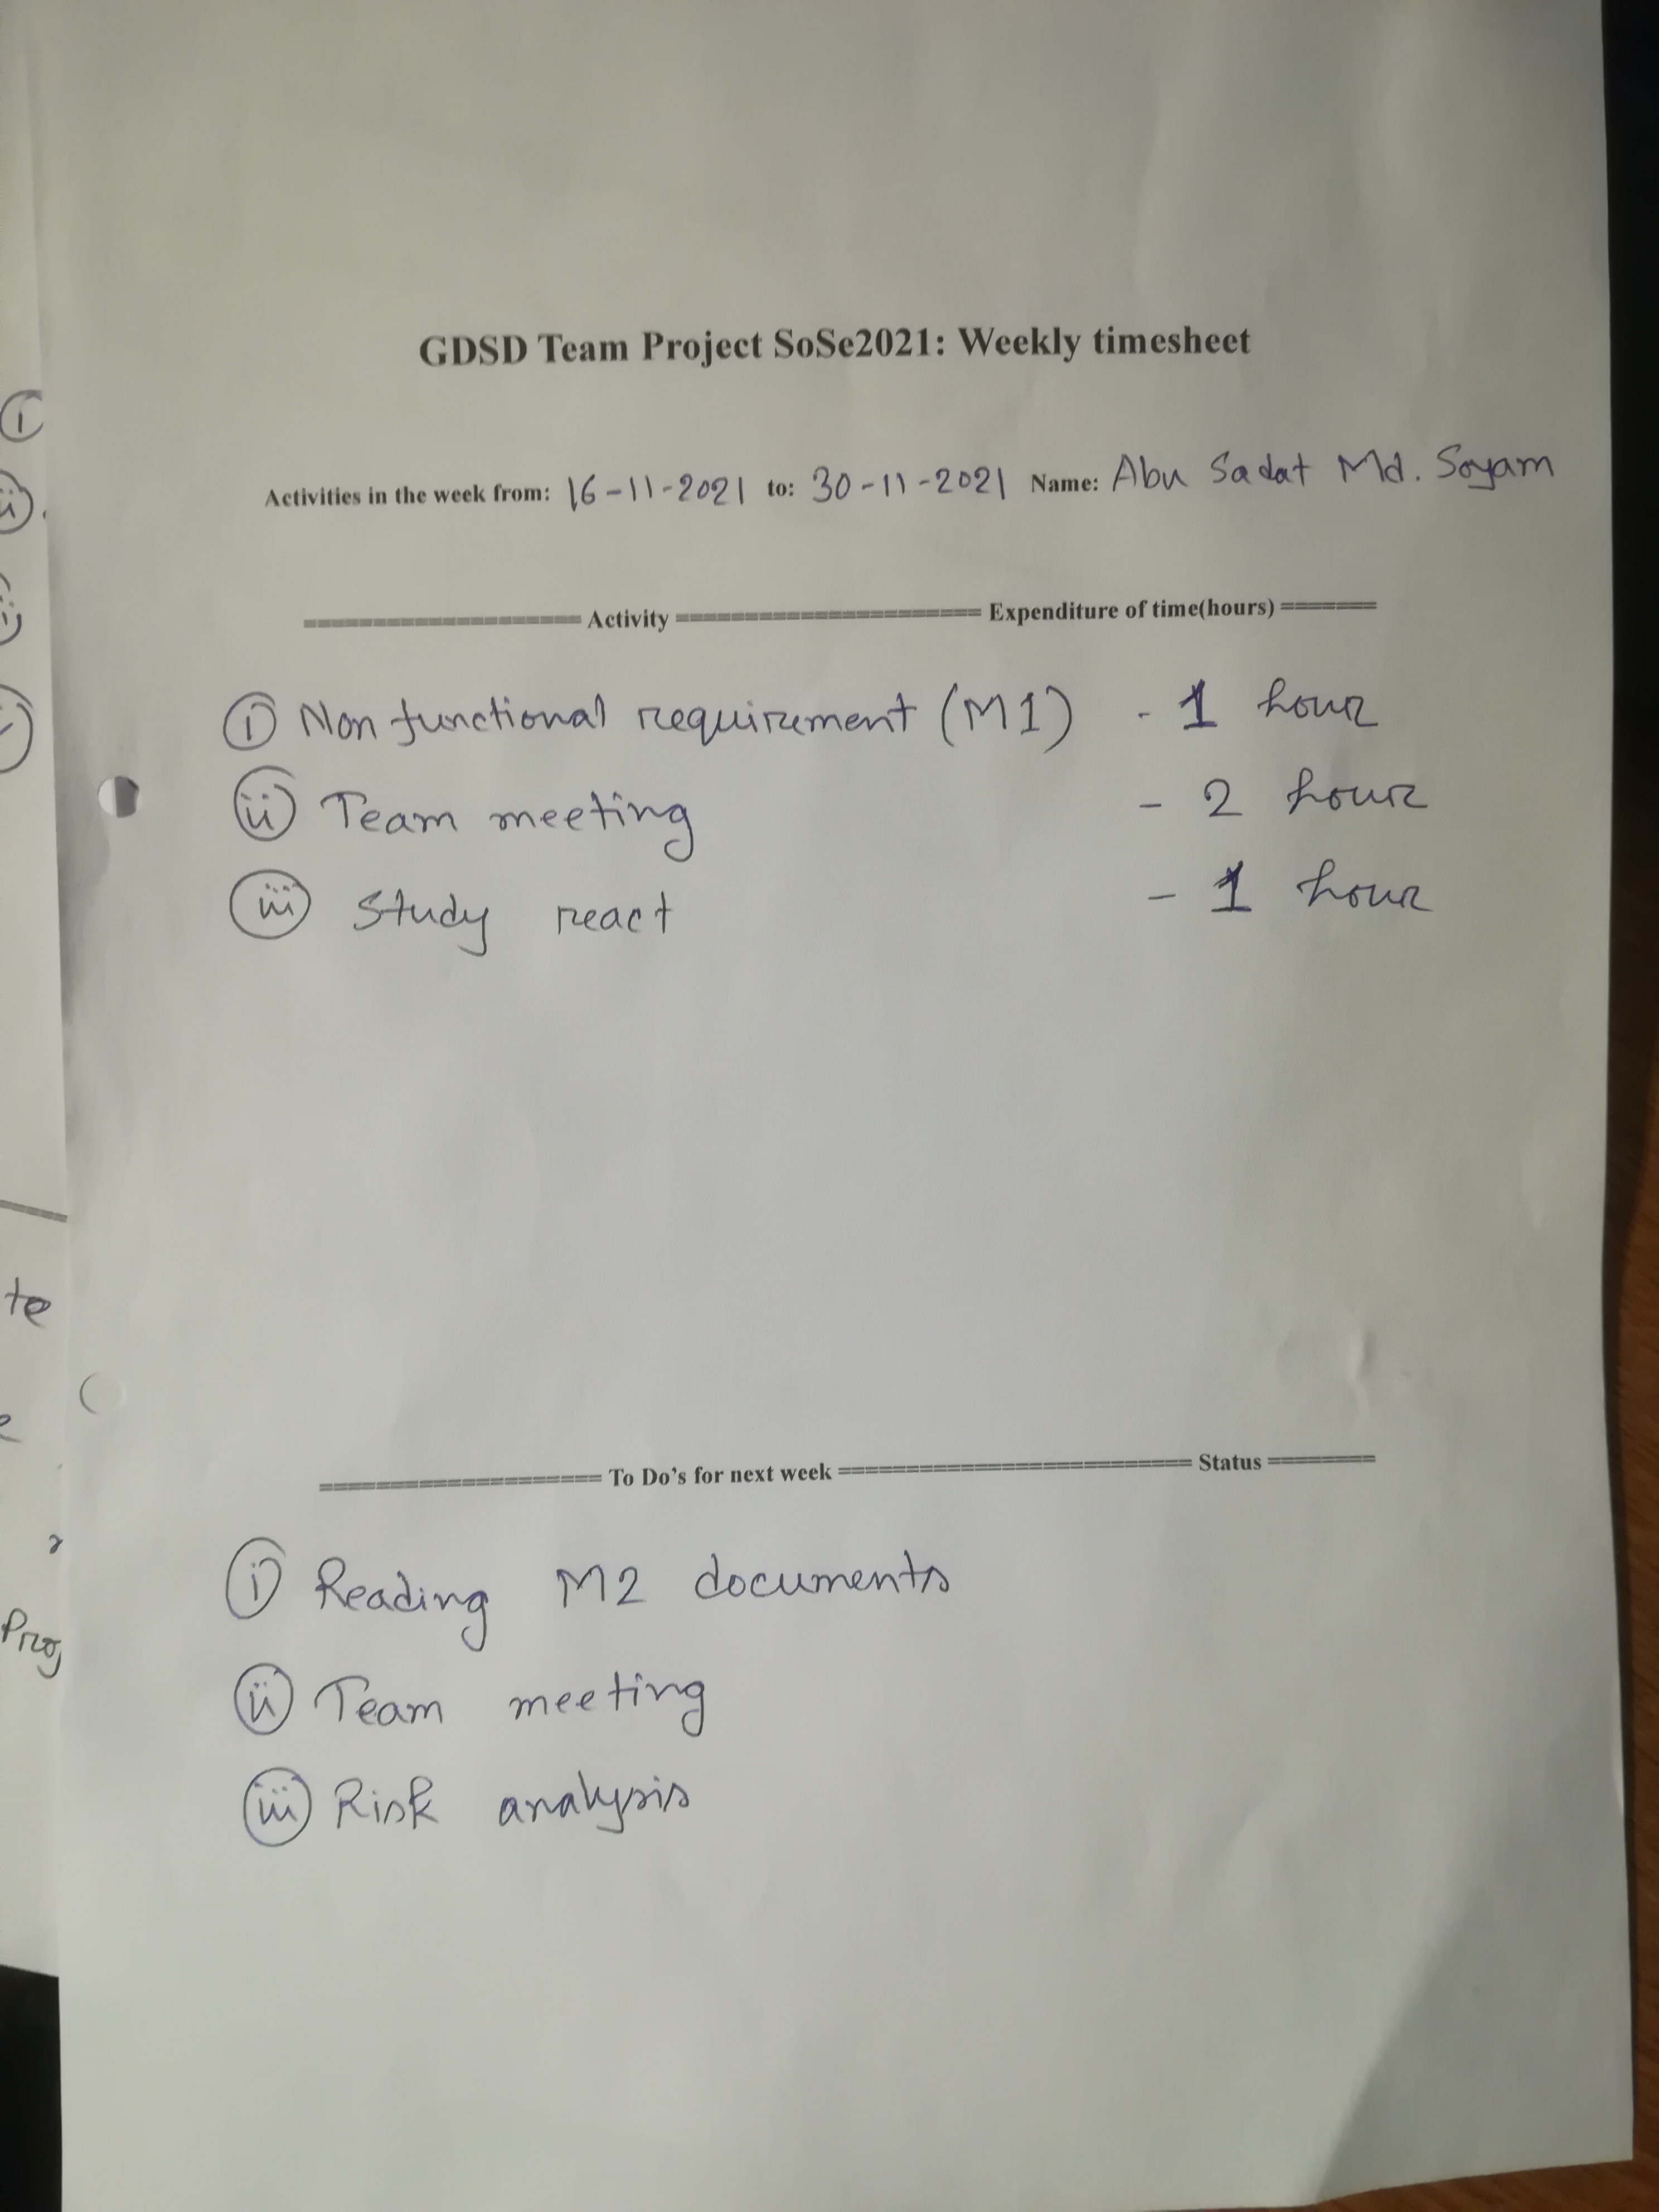 GDSD Team Project SoSe2021: Weekly timesheet
Activities in the week from: 16-11-2021 to: 30-11-2021 Name: Abu Sadat Md. Soyam
==================== Activity ====================== Expenditure of time(hours) =======
i Non functional requirement (M1) - 1 hour
ii Team meeting - 2 hour
iii Study react - 1 hour
==================== To Do's for next week ========================= Status ========
i Reading M2 documents
ii Team meeting
iii Risk analysis
i
ii.
te
Proj